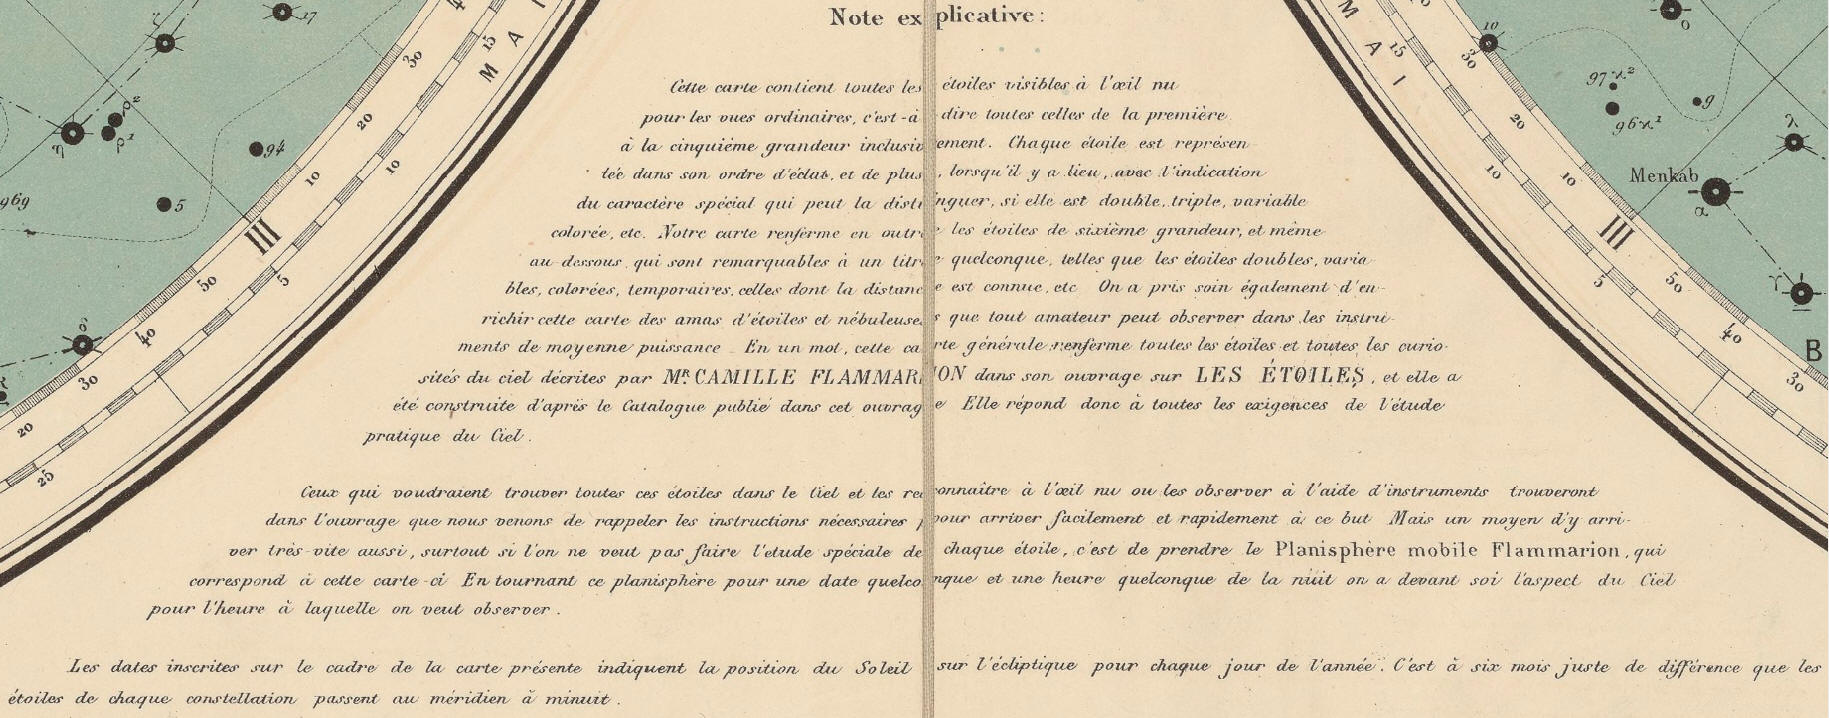 Note explicative:
Cette carte contient toutes les étoiles visibles à l'œil nu
pour les vues ordinaires, c'est-à dire toutes celles de la première
à la cinquième grandeur inclusivement. Chaque étoile est représen-
tée dans son ordre d'éclat, et de plus, lorsqu'il y a lieu, avec l'indication
du caractère spécial qui peut la distinguer, si elle est double, triple, variable
colorée, etc. Notre carte renferme en outre les étoiles de sixième grandeur, et même
au-dessous, qui sont remarquables à un titre quelconque, telles que les étoiles doubles, varia-
bles, colorées, temporaires, celles dont la distance est connue, etc On a pris soin également d'en-
richir cette carte des amas d'étoiles et nébuleuses que tout amateur peut observer dans les instru-
ments de moyenne puissance _ En un mot, cette carte générale renferme toutes les étoiles et toutes les curio-
sités du ciel décrites par Mr. CAMILLE FLAMMARION dans son ouvrage sur LES ÉTOILES, et elle a
été construite d'après le Catalogue publié dans cet ouvrage Elle répond donc à toutes les exigences de l'étude
pratique du Ciel.
Ceux qui voudraient trouver toutes ces étoiles dans le Ciel et les reconnaître à l'œil nu ou les observer à l'aide d'instruments trouveront
dans l'ouvrage que nous venons de rappeler les instructions nécessaires pour arriver facilement et rapidement à ce but Mais un moyen d'y arri-
ver très-vite aussi, surtout si l'on ne veut pas faire l'etude spéciale de chaque étoile, c'est de prendre le Planisphère mobile Flammarion, qui
correspond à cette carte-ci En tournant ce planisphère pour une date quelconque et une heure quelconque de la nuit on a devant soi l'aspect du Ciel
pour l'heure à laquelle on veut observer.
Les dates inscrites sur le cadre de la carte présente indiquent la position du Soleil sur l'écliptique pour chaque jour de l'année. C'est à six mois juste de différence que les
étoiles de chaque constellation passent au méridien à minuit.
17
ζ
ρ²
η
ρ¹
94
969
5
δ
III
30
20
10
50
40
30
20
15
10
5
25
M A I
M A I
15
10
5
10
30
20
10
III
50
40
30
ο
97 ϰ²
96 ϰ¹
9
λ
Menkab
α
γ
B